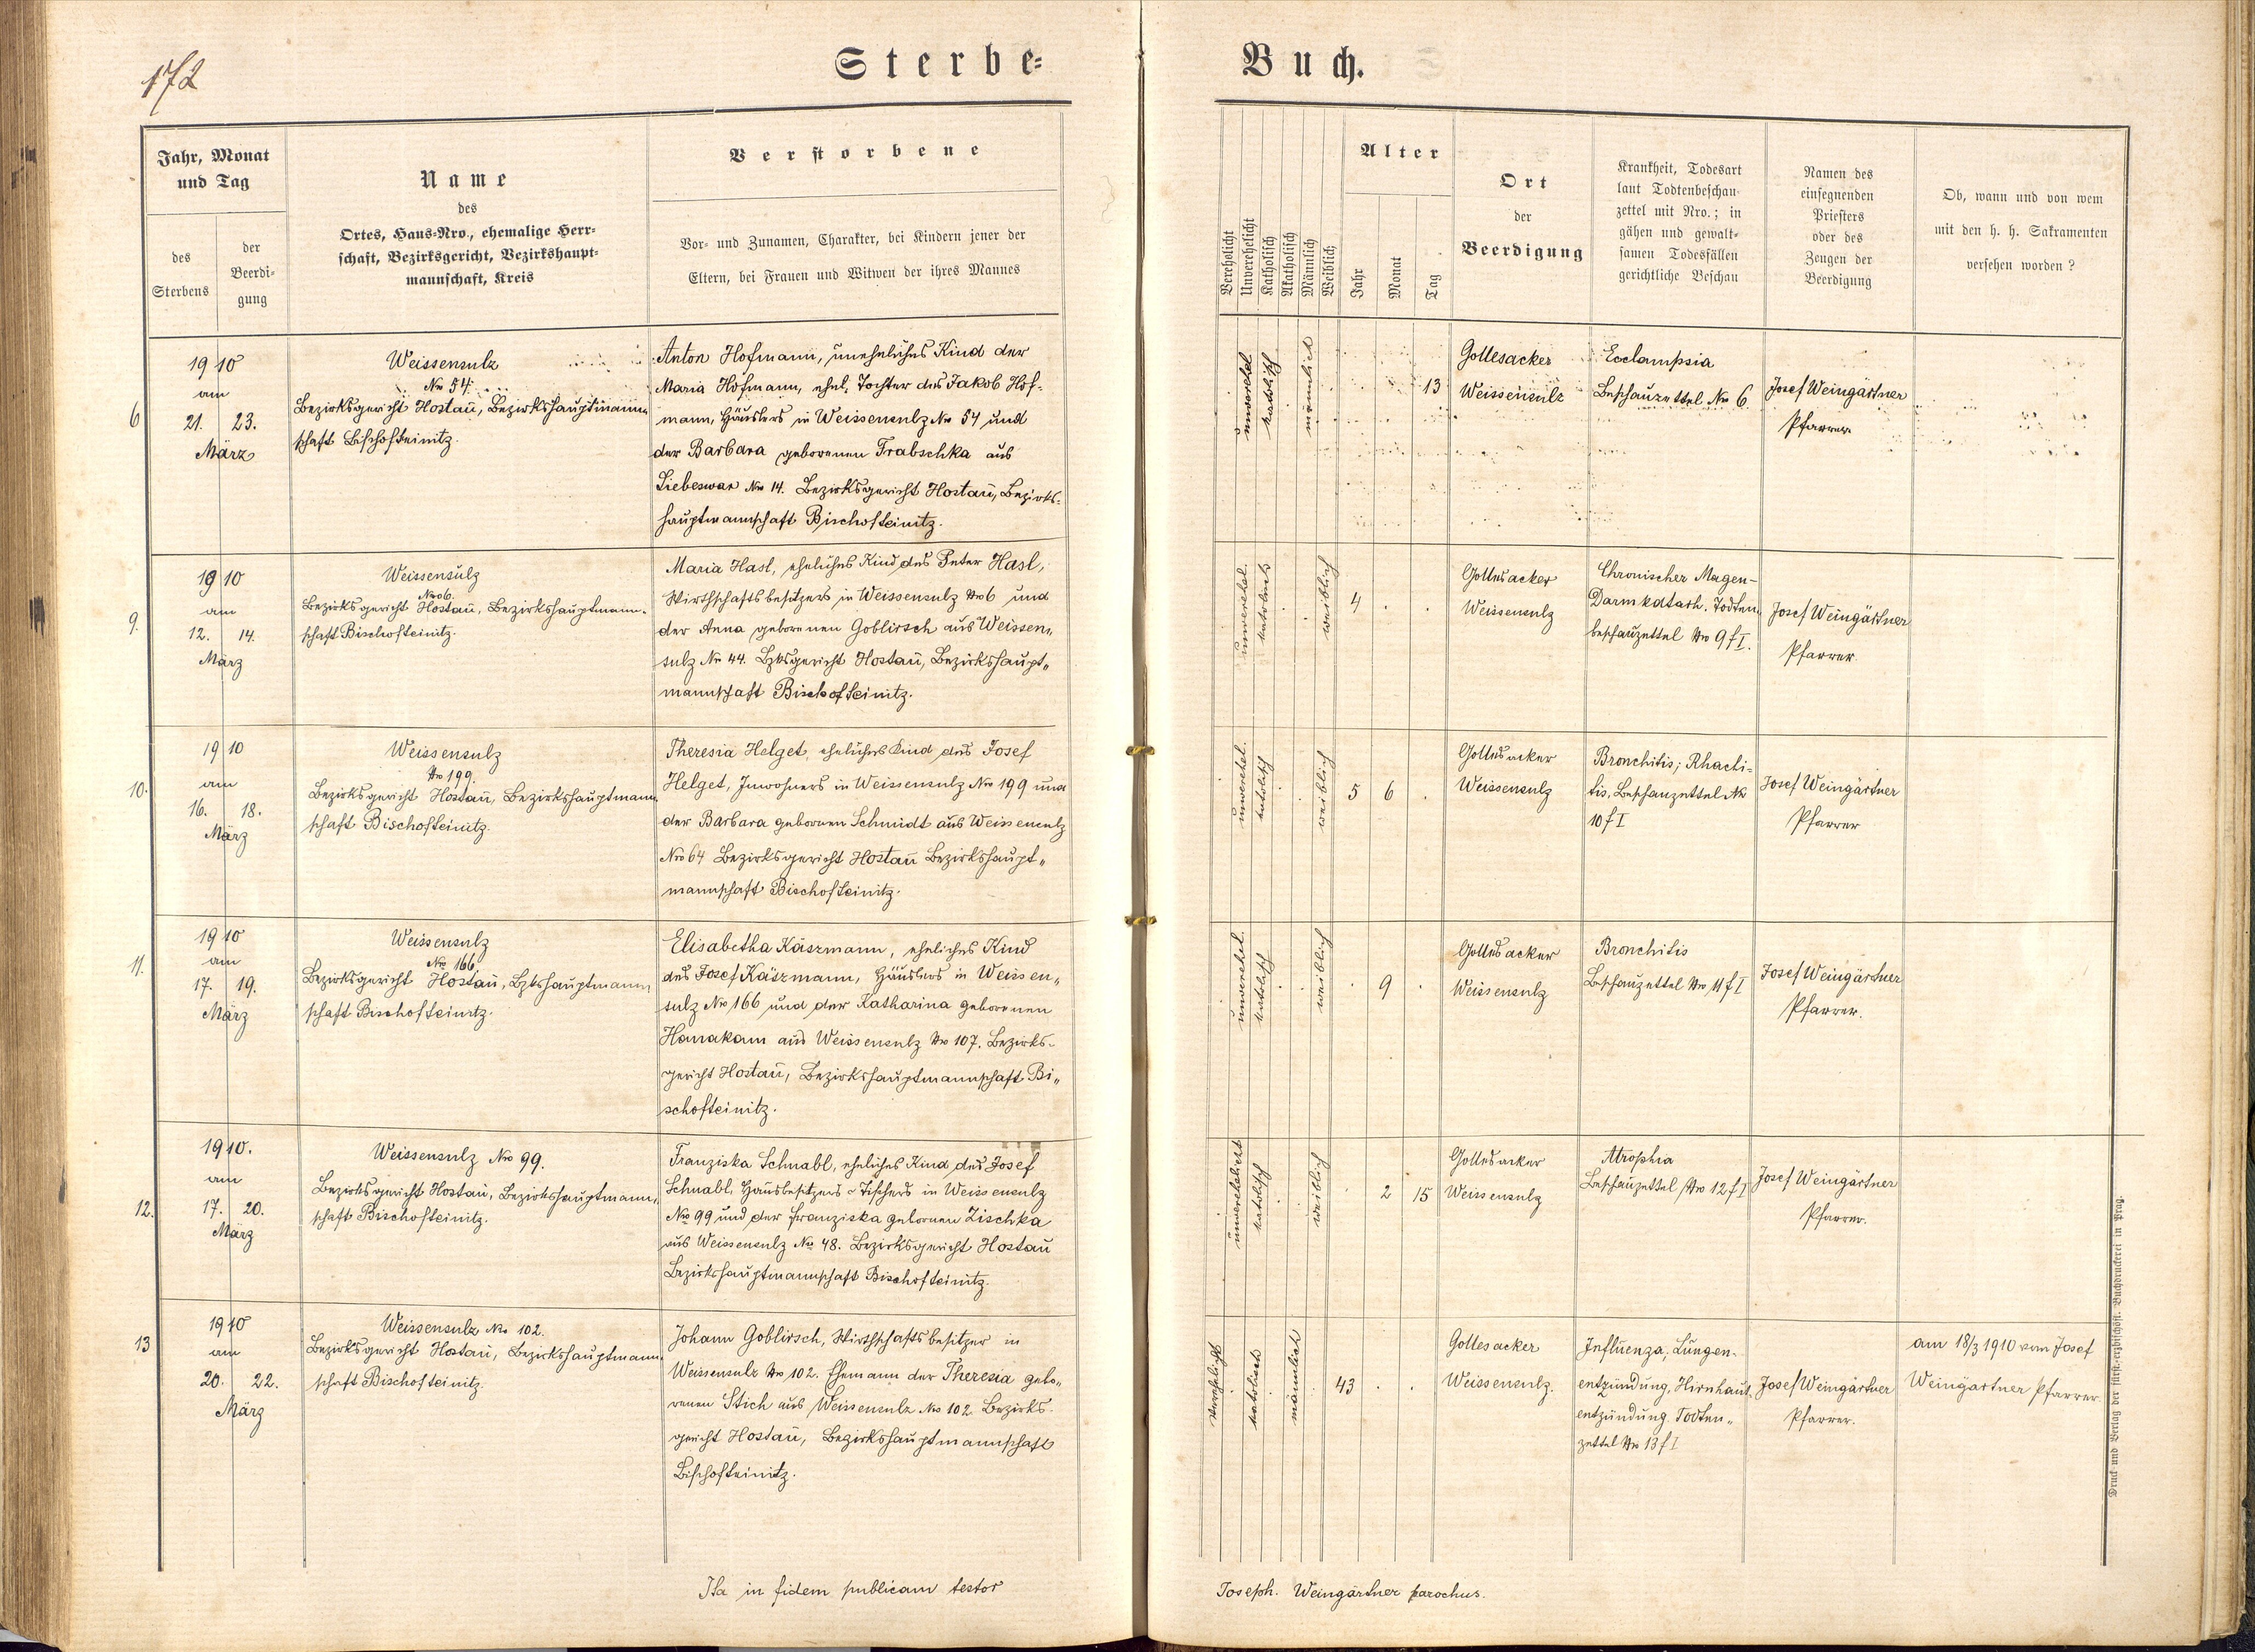 172
Sterbe-
Buch.
Jahr, Monat
und Tag
des
Sterbens
der
Beerdi-
gung
Name
des
Ortes, Haus-Nro., ehemalige Herr-
schaft, Bezirksgericht, Bezirkshaupt-
mannschaft, Kreis
Verstorbene
Vor- und Zunamen, Charakter, bei Kindern jener der
Eltern, bei Frauen und Witwen der ihres Mannes
Verehelicht
Unverehelicht
Katholisch
Akatholisch
Männlich
Weiblich
Alter
Jahr
Monat
Tag
Ort
der
Beerdigung
Krankheit, Todesart
laut Todtenbeschau-
zettel mit Nro.; in
gähen und gewalt-
samen Todesfällen
gerichtliche Beschau
Namen des
einsegnenden
Priesters
oder des
Zeugen der
Beerdigung
Ob, wann und von wem
mit den h. h. Sakramenten
versehen worden?
6
1910
am
21. 23.
März
Weissensulz
No 54.
Bezirksgericht Hostau, Bezirkshauptmann-
schaft Bischofteinitz.
Anton Hofmann, uneheliches Kind der
Maria Hofmann, ehel. Tochter des Jakob Hof-
mann, Häuslers in Weissensulz No 54 und
der Barbara geborenen Trabschka aus
Liebeswar No 14. Bezirksgericht Hostau, Bezirks-
hauptmannschaft Bischofteinitz.
unverehel
katolisch
männlich
13
Gottesacker
Weissensulz
Ecclampsia
Beschauzettel No 6
Josef Weingärtner
Pfarrer
9.
1910
am
12. 14.
März
Weissensulz
No 6.
Bezirksgericht Hostau, Bezirkshauptmann-
schaft Bischofteinitz.
Maria Hasl, eheliches Kind des Peter Hasl,
Wirthschaftsbesitzers in Weissensulz No 6 und
der Anna geborenen Goblirsch aus Weissen„
sulz No 44. Bzksgericht Hostau, Bezirkshaupt„
mannschaft Bischofteinitz.
unverehel.
katolisch
weiblich
4
Gottesacker
Weissensulz
Chronischer Magen-
Darmkatarh. Todten„
beschauzettel No 9 f I.
Josef Weingärtner
Pfarrer.
10.
1910
am
16. 18.
März
Weissensulz
No 199.
Bezirksgericht Hostau, Bezirkshauptmann„
schaft Bischofteinitz.
Theresia Helget, eheliches Kind des Josef
Helget, Inwohners in Weissensulz No 199 und
der Barbara gebornen Schmidt aus Weissensulz
No 64 Bezirksgericht Hostau Bezirkshaupt„
mannschaft Bischofteinitz.
unverehel.
katolisch
weiblich
5 6
Gottesacker
Weissensulz
Bronchitis; Rhachi-
tis, Beschauzettel No
10 f I
Josef Weingärtner
Pfarrer
11.
1910
am
17. 19.
März
Weissensulz
No 166
Bezirksgericht Hostau, Bzkshauptmann
schaft Bischofteinitz.
Elisabetha Käszmann, eheliches Kind
des Josef Käszmann, Häuslers in Weissen„
sulz No 166 und der Katharina geborenen
Hanakam aus Weissensulz No 107. Bezirks-
gericht Hostau, Bezirkshauptmannschaft Bi„
schofteinitz.
unverehel.
katolisch
weiblich
9
Gottesacker
Weissensulz
Bronchitis
Beschauzettel No 11 f I
Josef Weingärtner
Pfarrer.
12.
1910.
am
17. 20.
März
Weissensulz No 99.
Bezirksgericht Hostau, Bezirkshauptmann„
schaft Bischofteinitz.
Franziska Schnabl, eheliches Kind des Josef
Schnabl, Hausbesitzers & Tischers in Weissensulz
No 99 und der Franziska gebornen Zischka
aus Weissensulz No 48. Bezirksgericht Hostau
Bezirkshauptmannschaft Bischofteinitz.
unverehelicht
katolisch
weiblich
2 15
Gottesacker
Weissensulz
Atrophia
Beschauzettel No 12 f I
Josef Weingärtner
Pfarrer.
13
1910
am
20. 22.
März
Weissensulz No 102.
Bezirksgericht Hostau, Bezirkshauptmann„
schaft Bischofteinitz.
Johann Goblirsch, Wirthschaftsbesitzer in
Weissensulz No 102. Ehemann der Theresia gebo„
renen Stich aus Weissensulz No 102. Bezirks-
gericht Hostau, Bezirkshauptmannschaft
Bischofteinitz.
verehelicht
katolisch
männlich
43
Gottesacker
Weissensulz.
Influenza, Lungen-
entzündung, Hirnhaut-
entzündung. Todten„
zettel No 13 f I
Josef Weingärtner
Pfarrer.
am 18/3 1910 von Josef
Weingärtner Pfarrer
Ita in fidem publicam testor
Joseph. Weingärtner parochus.
Druck und Verlag der fürst-erzbischöfl. Buchdruckerei in Prag.